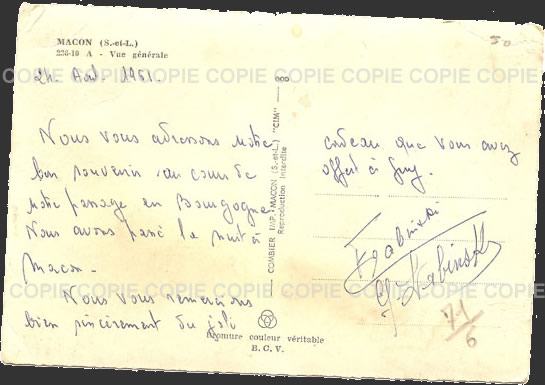 MACON (S.-et-L.)
226-10 A - Vue générale
50
24 Aout 1961.
COPIE COPIE COPIE COPIE COPIE COPIE COPIE COPIE
Nous vous adressons notre
bon souvenir au cours de
notre passage en Bourgogne
Nous avons passé la nuit à
Macon.
Nous vous remercions
bien sincèrement du joli
COPIE COPIE COPIE COPIE COPIE COPIE COPIE COPIE
COMBIER IMP. MACON (S.-et-L.) "CIM"
Reproduction Interdite
cadeau que vous avez
offert à Guy.
COPIE COPIE COPIE COPIE COPIE COPIE COPIE COPIE
71/6
Bromure couleur véritable
B. C. V.